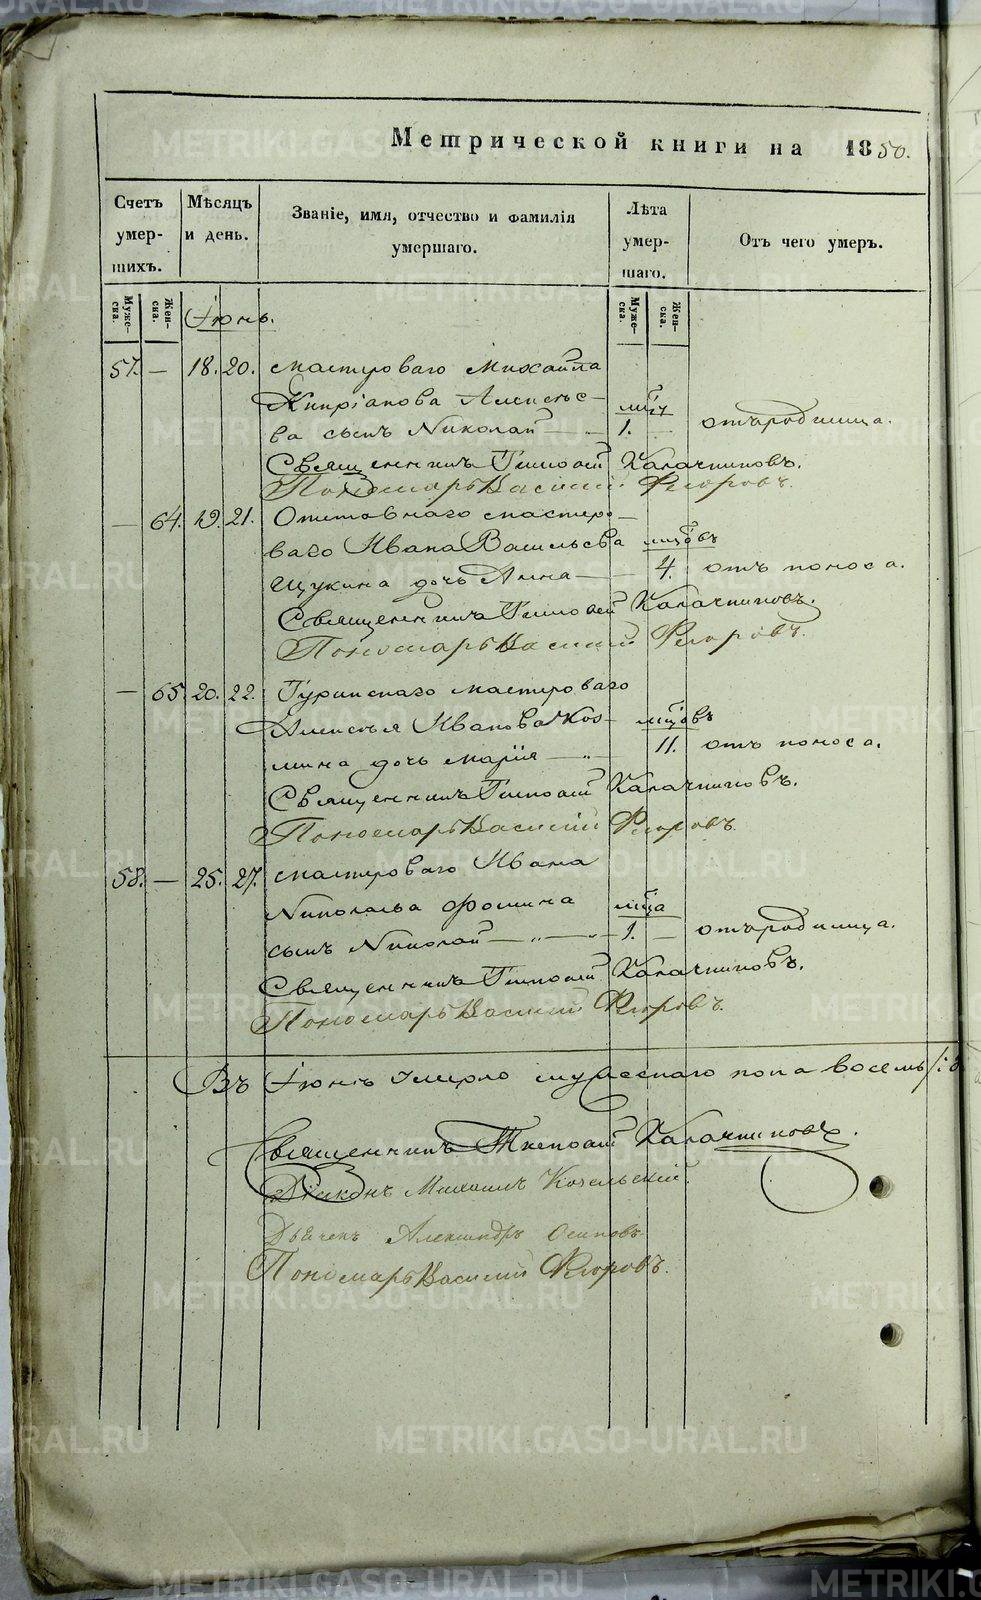 Метрической книги на 1850.
Счетъ умершихъ.
Мѣсяцъ и день.
Званіе, имя, отчество и фамилія умершаго.
Лѣта умершаго.
Отъ чего умеръ.
Муже-ска.
Жен-ска.
Муже-ска.
Жен-ска.
Іюнь.
57. — 18. 20. мастероваго Михаила
Кипріанова Алексѣе- мцъ
ва сынъ Николай — 1. — отъ родимца.
Священникъ Тимофей Калачниковъ.
Пономарь Василій Флоровъ.
— 64. 19. 21. Отставнаго мастеро-
ваго Ивана Васильева мцовъ
Щукина дочь Анна — 4. отъ поноса.
Священникъ Тимофей Калачниковъ.
Пономарь Василій Флоровъ.
— 65. 20. 22. Туринскаго мастероваго
Алексѣя Иванова Коз- мцовъ
мина дочь Марія — 11. отъ поноса.
Священникъ Тимофей Калачниковъ.
Пономарь Василій Флоровъ.
58. — 25. 27. мастероваго Ивана
Николаева Фомина мца
сынъ Николай — „ — „ — 1. — отъ родимца.
Священникъ Тимофей Калачниковъ.
Пономарь Василій Флоровъ.
Въ Іюнѣ умерло мужескаго пола восемь
Священникъ Тимофей Калачниковъ.
Діаконъ Михаилъ Кочельскій.
Дьячекъ Александръ Осиповъ
Пономарь Василій Флоровъ.
METRIKI.GASO-URAL.RU